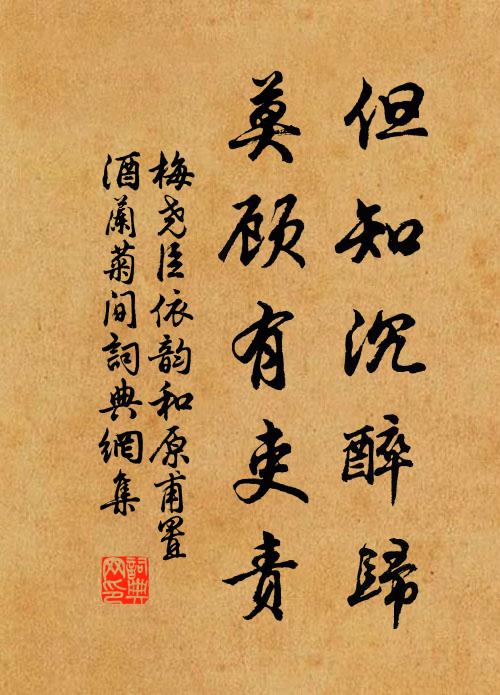 但知沉醉歸
莫顾有吏责
梅尧臣依韵和原甫置
酒蘭菊间詞典網集
詞典
网印